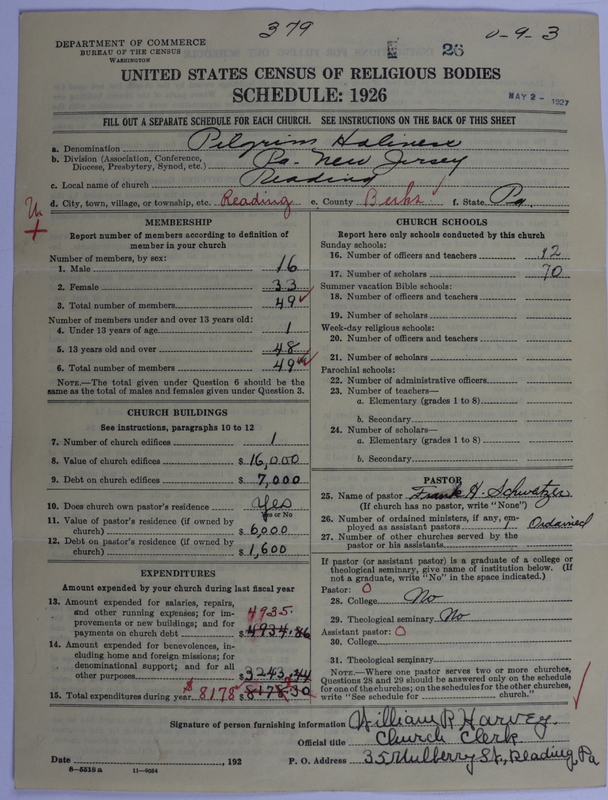 379
26
0-9-3
DEPARTMENT OF COMMERCE
BUREAU OF THE CENSUS
WASHINGTON
UNITED STATES CENSUS OF RELIGIOUS BODIES
SCHEDULE: 1926
MAY 2 - 1927
FILL OUT A SEPARATE SCHEDULE FOR EACH CHURCH. SEE INSTRUCTIONS ON THE BACK OF THIS SHEET
a. Denomination Pilgrim Holiness
b. Division (Association, Conference, Diocese, Presbytery, Synod, etc.) Pa-New Jersey
c. Local name of church Reading
d. City, town, village, or township, etc. Reading e. County Berks f. State Pa.
MEMBERSHIP
Report number of members according to definition of
member in your church
Number of members, by sex:
1. Male 16
2. Female 33
3. Total number of members 49
Number of members under and over 13 years old:
4. Under 13 years of age 1
5. 13 years old and over 48
6. Total number of members 49
NOTE.—The total given under Question 6 should be the
same as the total of males and females given under Question 3.
CHURCH BUILDINGS
See instructions, paragraphs 10 to 12
7. Number of church edifices 1
8. Value of church edifices $ 16,000
9. Debt on church edifices $ 7,000
10. Does church own pastor's residence Yes
Yes or No
11. Value of pastor's residence (if owned by
church) $ 6,000
12. Debt on pastor's residence (if owned by
church) $ 1,600
EXPENDITURES
Amount expended by your church during last fiscal year
13. Amount expended for salaries, repairs,
and other running expenses; for im-
provements or new buildings; and for
payments on church debt 4935. $ 4934.86
14. Amount expended for benevolences, in-
cluding home and foreign missions; for
denominational support; and for all
other purposes $ 3243.44
15. Total expenditures during year $8178 $ 8178.30
CHURCH SCHOOLS
Report here only schools conducted by this church
Sunday schools:
16. Number of officers and teachers 12
17. Number of scholars 70
Summer vacation Bible schools:
18. Number of officers and teachers
19. Number of scholars
Week-day religious schools:
20. Number of officers and teachers
21. Number of scholars
Parochial schools:
22. Number of administrative officers
23. Number of teachers—
a. Elementary (grades 1 to 8)
b. Secondary
24. Number of scholars—
a. Elementary (grades 1 to 8)
b. Secondary
PASTOR
25. Name of pastor Frank H. Schweitzer
(If church has no pastor, write "None")
26. Number of ordained ministers, if any, em-
ployed as assistant pastors 1 Ordained
27. Number of other churches served by the
pastor or his assistants
If pastor (or assistant pastor) is a graduate of a college or
theological seminary, give name of institution below. (If
not a graduate, write "No" in the space indicated.)
Pastor: 0
28. College No
29. Theological seminary No
Assistant pastor: 0
30. College
31. Theological seminary
NOTE.—Where one pastor serves two or more churches,
Questions 28 and 29 should be answered only on the schedule
for one of the churches; on the schedules for the other churches,
write "See schedule for church."
Signature of person furnishing information William R Harvey
Official title Church Clerk
Date , 192 P. O. Address 35 Mulberry St., Reading, Pa
8-5518 a 11-9084